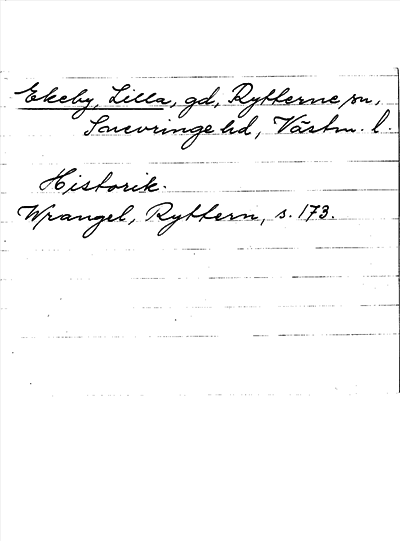 Ekeby, Lilla, gd, Rytterne sn,
Snevringe hd, Västm. l.
Historik.
Wrangel, Ryttern, s. 173.